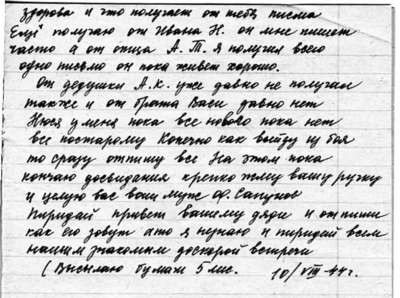 здорова и что получает от тебя писма
Ещё получаю от Ивана Н. он мне пишет
часто а от отца А. Т. я получил всего
одно писмо он пока живет хорошо.
От дедушки А.К. уже давно не получал
также и от брата Васи давно нет
Нюся у меня пока все нового пока нет
все постарому Конечно как выйду из боя
то сразу отпишу все На этом пока
кончаю досвидания крепко жму вашу ручку
и целую вас ваш муж Ф. Сапунов
Пиридай привет вашему дяди и отпиши
как его зовут а то я незнаю и пиридай всем
нашим знакомым доскорой встречи
(Высылаю бумаги 5 лис. 10/VIII 44 г.